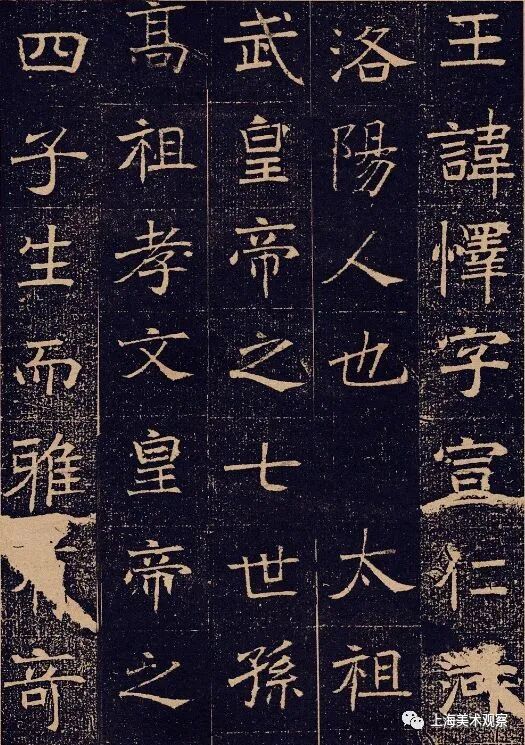 王諱懌字宣仁河
洛陽人也 太祖
武皇帝之七世孫
高祖孝文皇帝之
四子生而雅有奇
上海美术观察